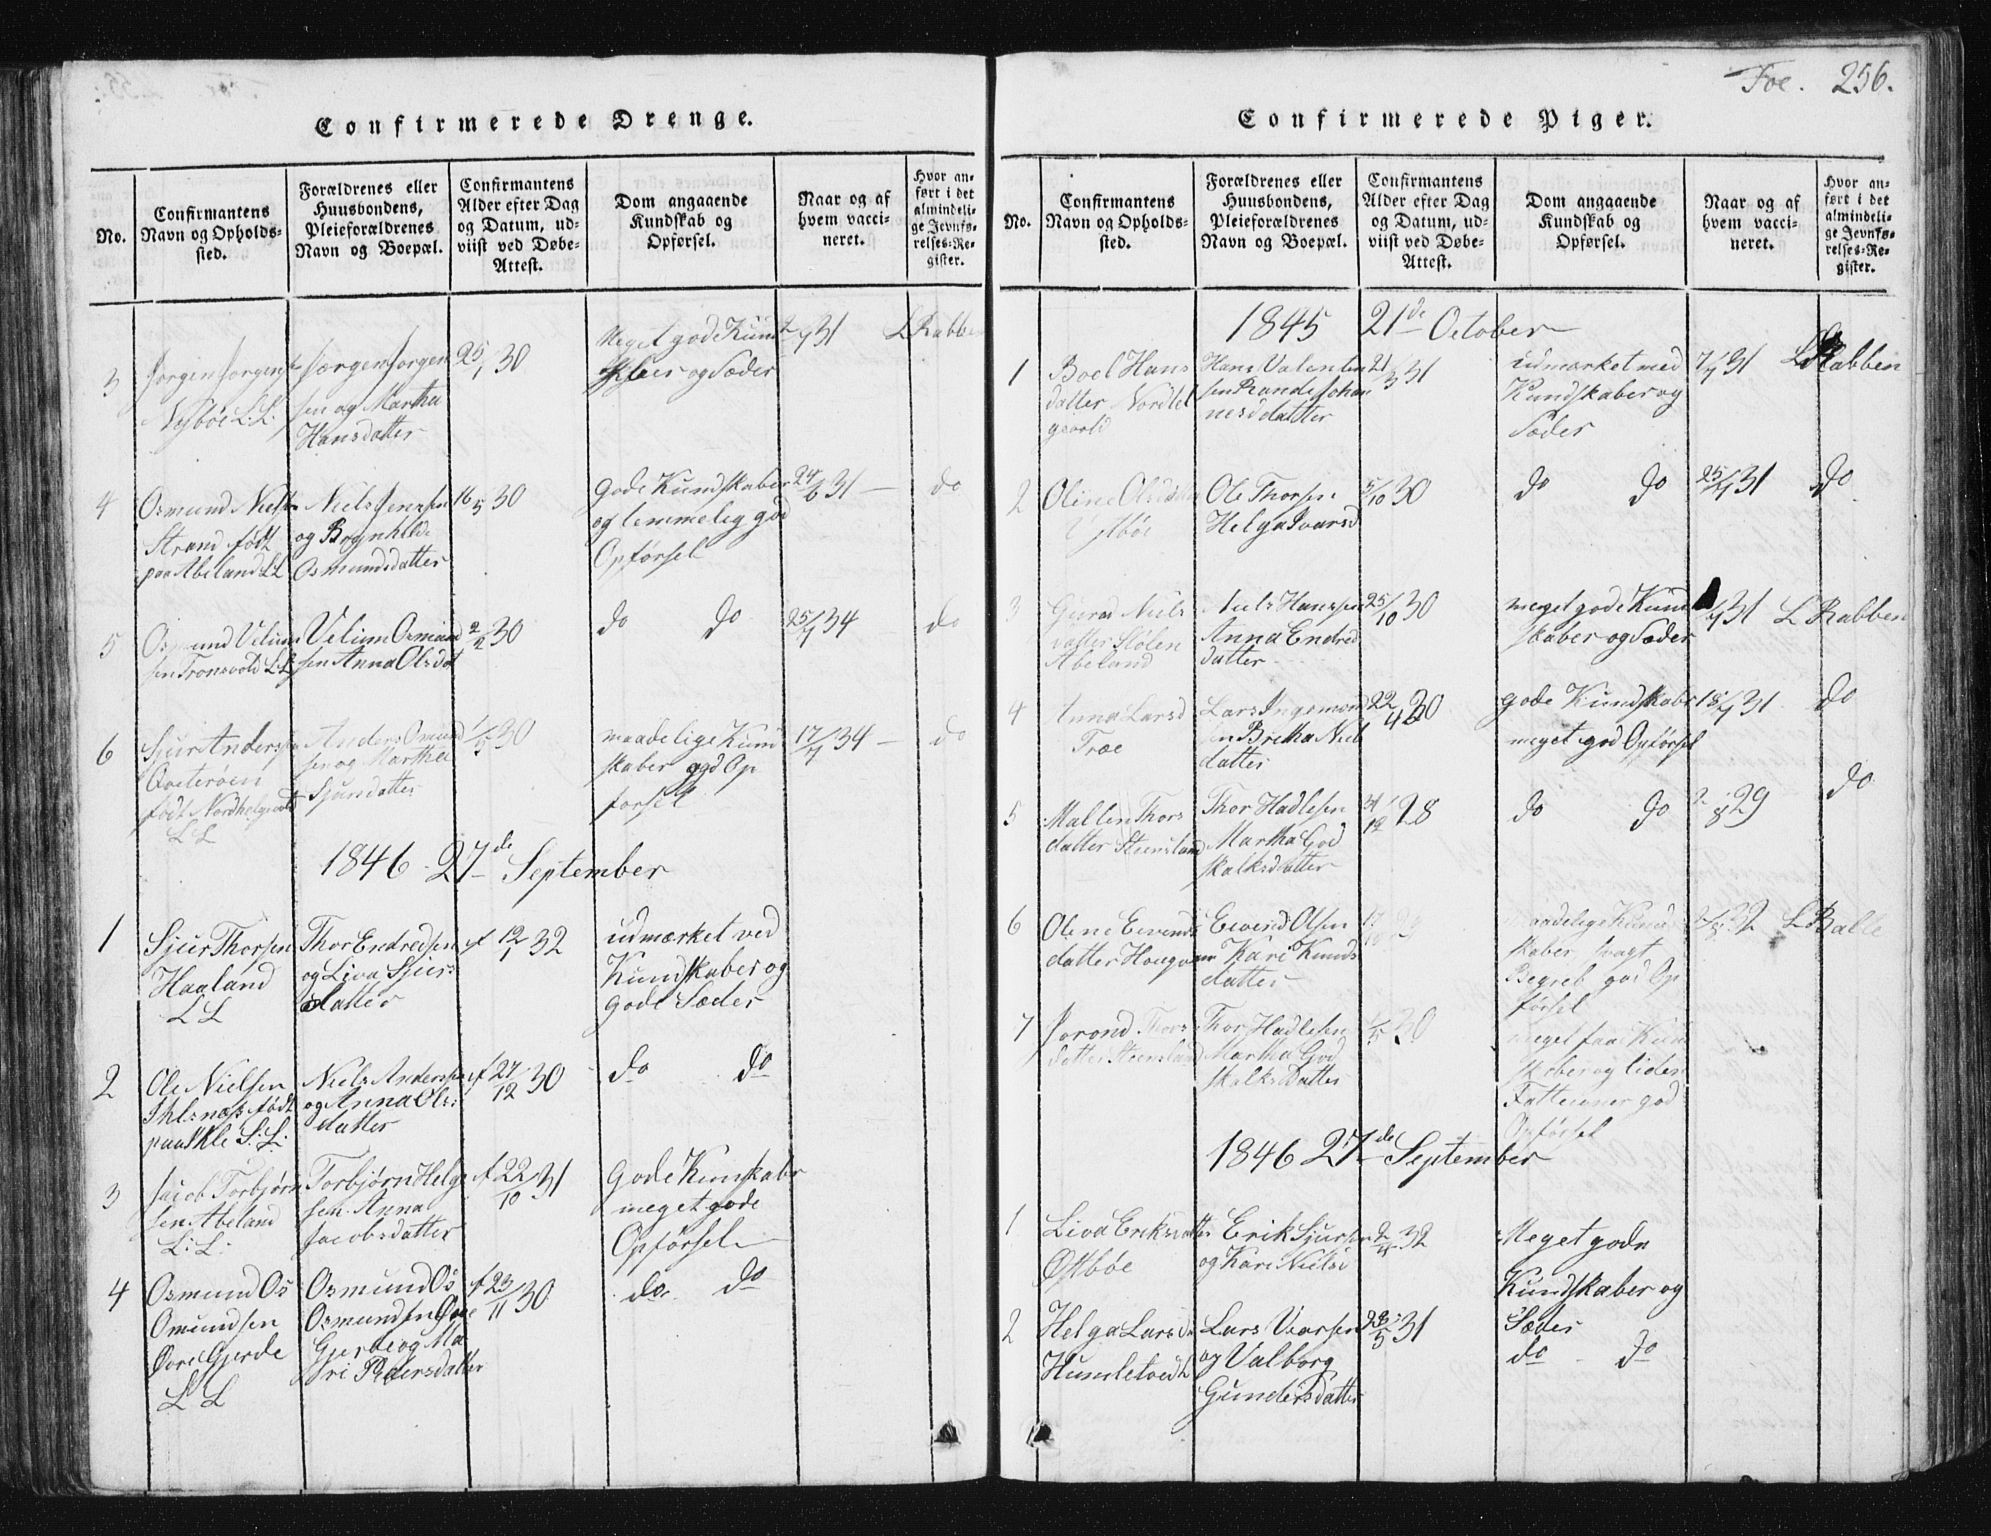 Foe. 256.
Confirmerede Drenge.
No.
Confirmantens
Navn og Opholds-
sted.
Forældrenes eller
Huusbondens,
Pleieforældrenes
Navn og Boepæl.
Confirmantens
Alder efter Dag
og Datum, ud-
viist ved Døbe-
Attest.
Dom angaaende
Kundskab og
Opførsel.
Naar og af
hvem vacci-
neret.
Hvor an-
ført i det
almindeli-
ge Jevnfø-
relses-Re-
gister.
3
Jørgen Jørgens
Nysbøe L:L:
Jørgen Jørgen
sen og Martha
Hansdatter
25/1 30
Meget gode Kund
og Sæder
31
L Rabben
4
Osmund Niels
Strand født
paa Abeland LL
Niels Jensen
og Rognhilde
Osmundsdatter
16/5 30
Gode Kundskaber
og temmelig god
Opførsel
24/6 31 —
do
5
Osmund Velium
sen Tronsvold L:L
Velium Osmund
sen Anna Olsdat
2/2 30
do do
25/7 34
do
6
Sjur Anders
født Nordhelgevold
LL
Anders Osmund
sen og Marthe
Sjursdatter
1/5 30
maadelige Kund
skaber god Op
førsel
17/7 34 —
do
1846 27de September
1
Sjur Thorsen
Haaland
LL
Thor Endredsen
og Liva Sjurs
datter
f 12/1 32
udmærket ved
Kundskaber og
gode Sæder
2
Ole Nielsen
Ihlsnæs født
paa Ikle S:L:
Niels Andersen
og Anna Ols:
datter
f 27/12 30
do do
3
Jacob Torbjørn
sen Abeland
L:L:
Torbjørn Helge
sen Anna
Jacobsdatter
f 22/10 31
Gode Kunskaber
meget gode
Opførsel
4
Osmund Os
Omundsen
Øvre Gjerde
LL
Osmund Os
Osmundsen Øvre
Gjerde og Ma
ri Pedersdatter
f 23/11 30
do do
Confirmerede Piger.
No.
Confirmantens
Navn og Opholds-
sted.
Forældrenes eller
Huusbondens,
Pleieforældrenes
Navn og Boepæl.
Confirmantens
Alder efter Dag
og Datum, ud-
viist ved Døbe-
Attest.
Dom angaaende
Kundskab og
Opførsel.
Naar og af
hvem vacci-
neret.
Hvor an-
ført i det
almindeli-
ge Jevnfø-
relses-Re-
gister.
1845 21de October
1
Boel Hans
datter Nordhel
gevold
Hans Valentin
sen Rande Johan
nesdatter
21/3 31
udmærket med
Kundskaber og
Sæder
7/7 31
L Rabben
2
Oline Olsdatter
Ole Thorsen
Helga Ivarsd
5/10 30
do do
25/7 31
do
3
Gurod Niels
datter Stølen
Abeland
Niels Hanssen
Anna Endred
datter
25/10 30
meget gode Kund
skaber og Sæder
31
L Rabben
4
Anna Larsd
Træe
Lars Ingemond
sen Bretha Niels
datter
22/4 30
gode Kundskaber
meget god Opførsel
18/7 31
do
5
Mallen Thors
datter Steensland
Thor Hadlesen
Martha God
skalksdatter
31/12 28
do do
29
do
6
Olene Eevends
datter Hougvam
Eevend Olsen
Kari Knuds
datter
maadelige Kund
skaber, svagt
Begreb god Op
førsel
L
7
Jorond Thors
datter Steensland
Thor Hadlesen
Martha God
skalksdatter
30
meget faa Kun
skaber og liden
Fatteevner god
Opførsel
1846 27de September
1
Liva Eriksdatter
Østbøe
Erik Sjursen
og Kari Nielsd
2/4 32
Meget gode
Kundskaber og
Sæder
2
Helga Larsd
Humletvedt
Lars Vaarsen
og Valborg
Gundersdatter
23/5 31
do do